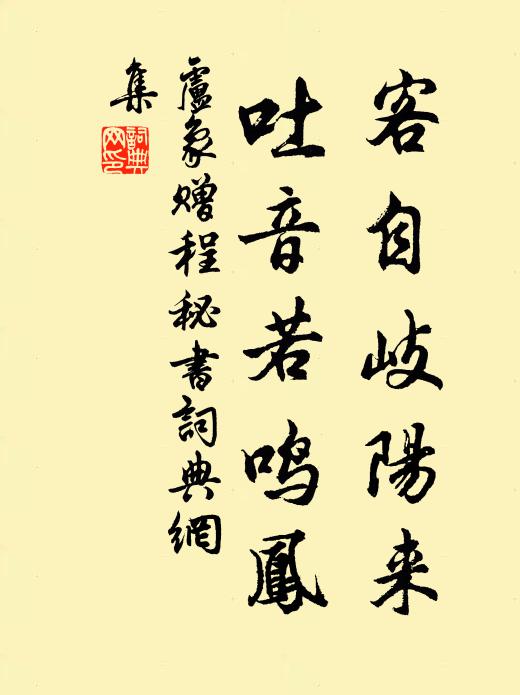 客自岐陽来
吐音若鳴鳳
盧象贈程秘書詞典網
集
詞典網印